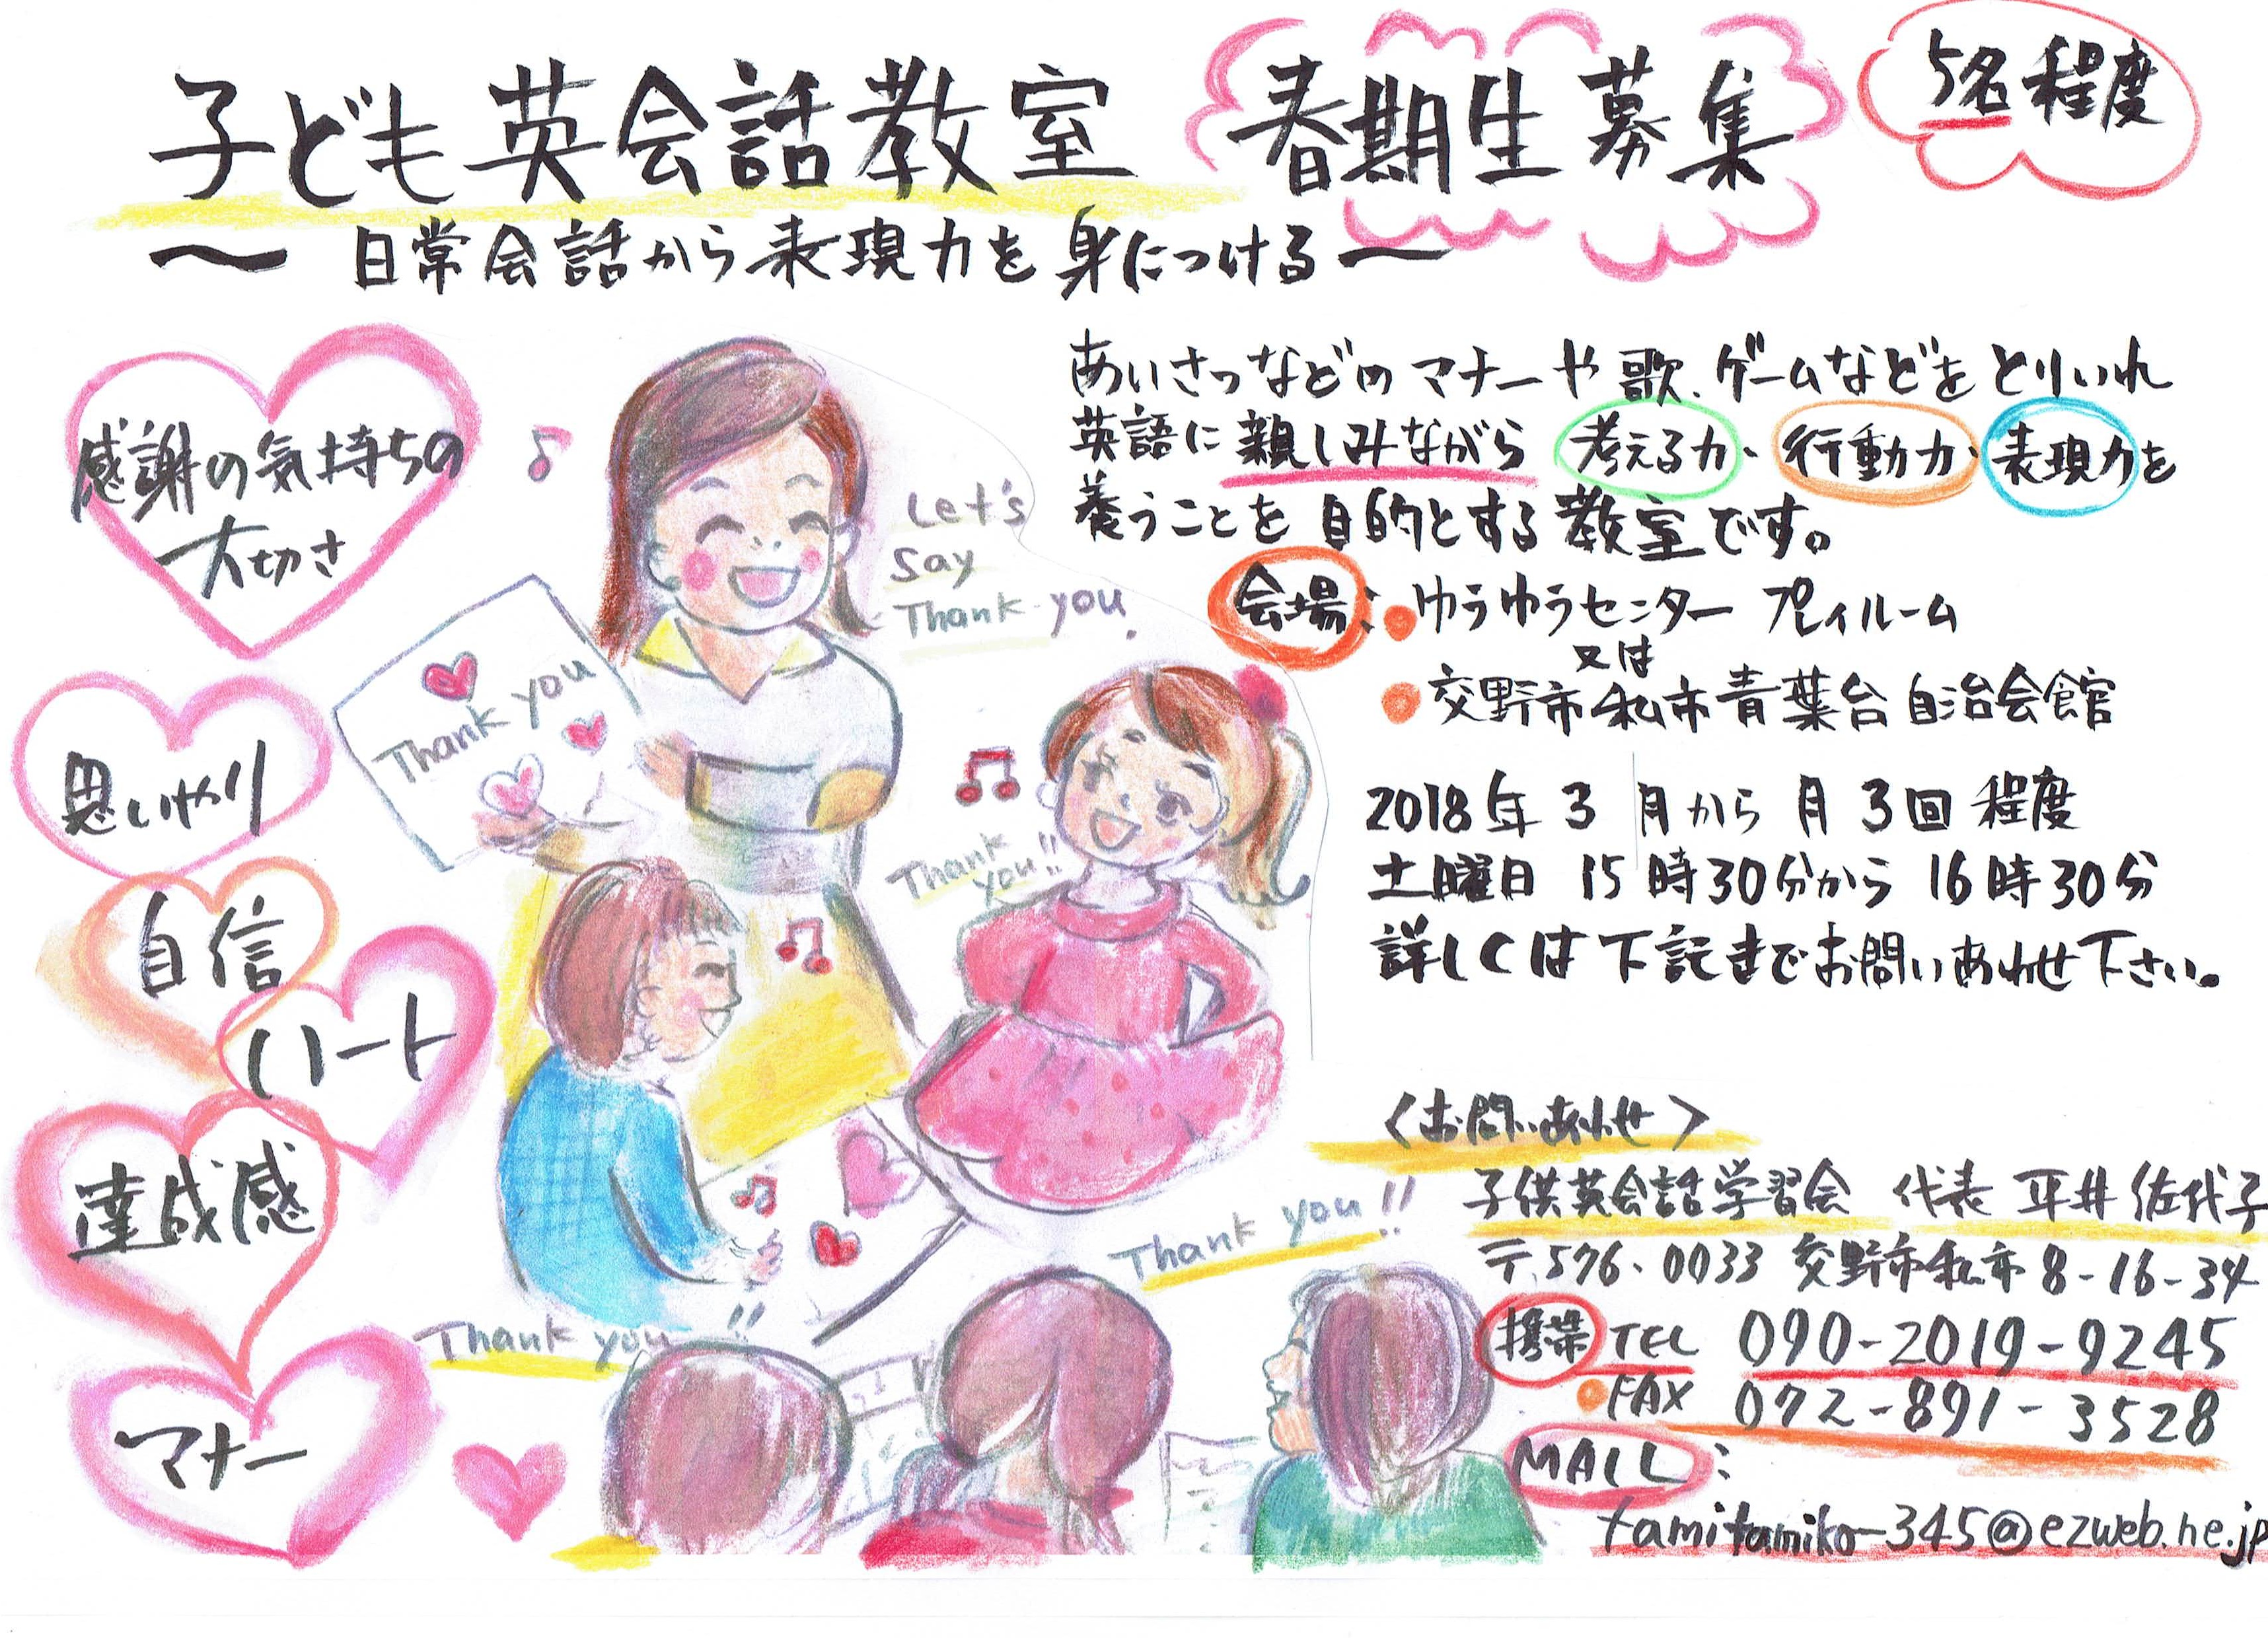 子ども英会話教室 春期生募集 5名程度
〜 日常会話から表現力を身につける 〜
あいさつなどのマナーや歌、ゲームなどをとりいれ
英語に親しみながら 考える力、行動力、表現力を
養うことを目的とする教室です。
会場:●ゆうゆうセンター プレイルーム
又は
●交野市私市青葉台自治会館
2018年3月から月3回程度
土曜日 15時30分から16時30分
詳しくは下記までお問いあわせ下さい。
感謝の気持ちの
大切さ
思いやり
自信
ハート
達成感
マナー
Let's
Say
Thank you.
Thank you
Thank
you!!
Thank you!!
Thank you!!
<お問いあわせ>
子供英会話学習会 代表 平井佐代子
〒576-0033 交野市私市8-16-34
携帯 TEL 090-2019-9245
●FAX 072-891-3528
MAIL:
tamitamiko-345@ezweb.ne.jp